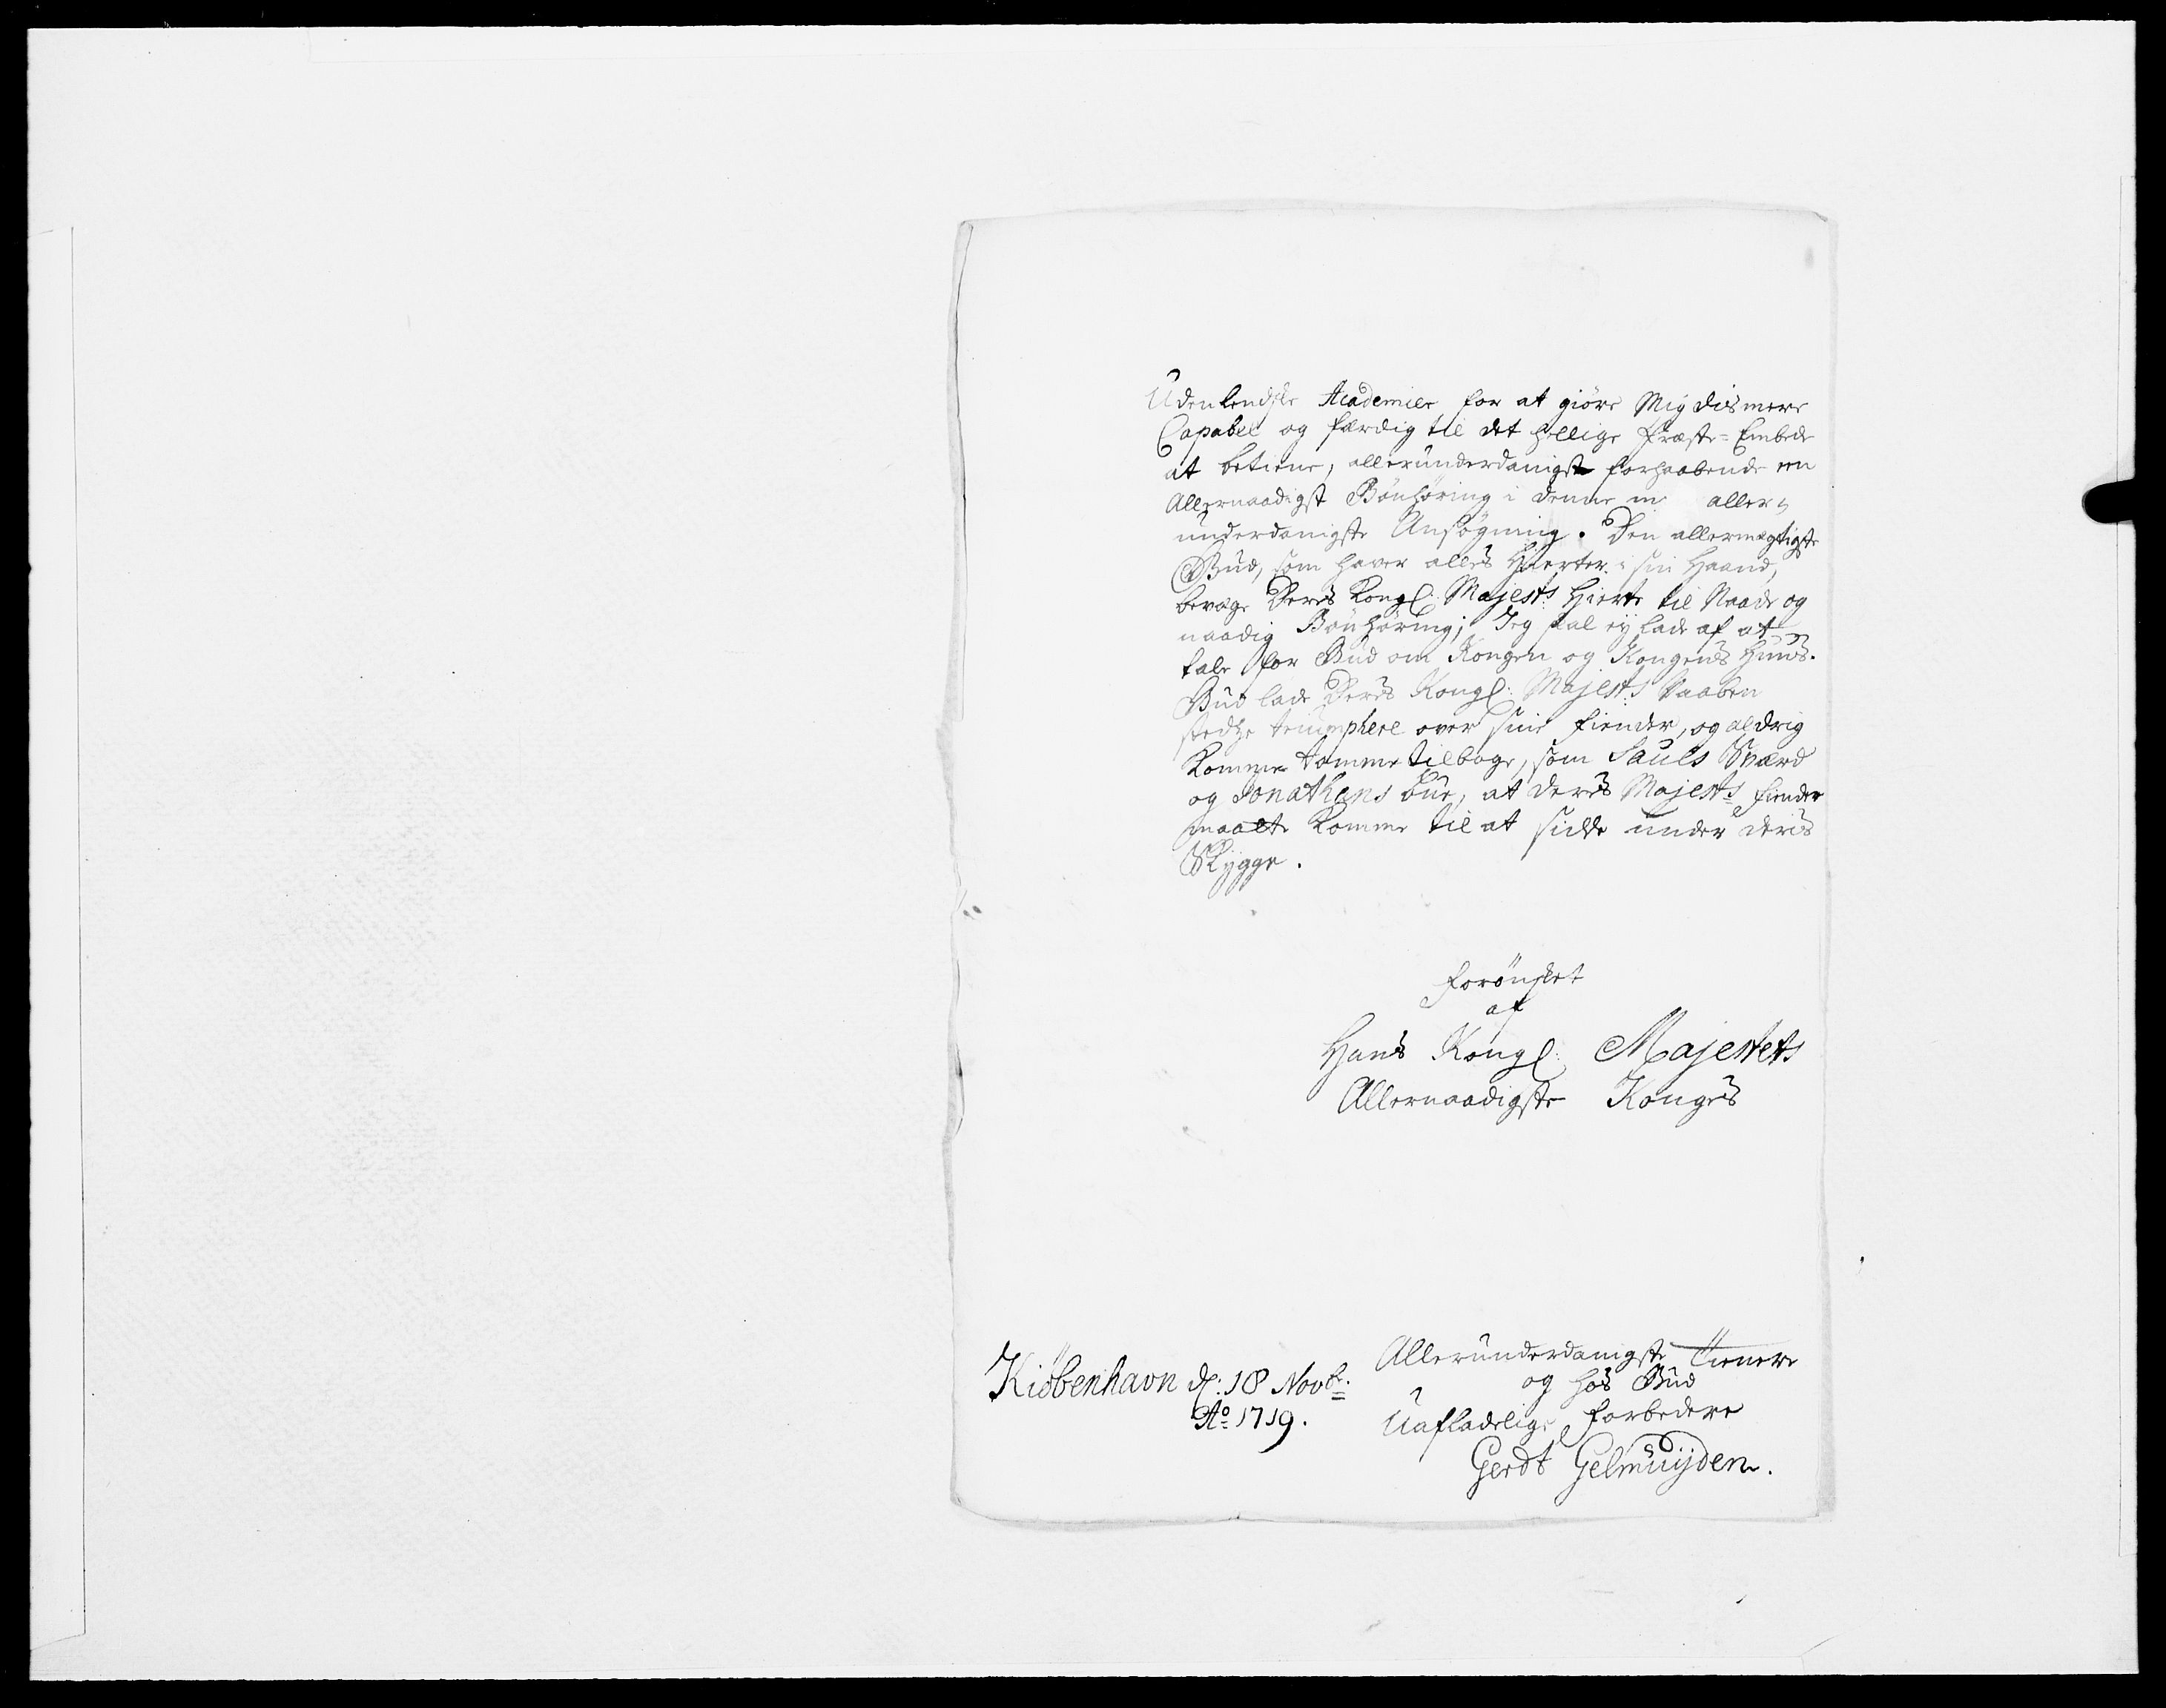 Udenlendske Academier for at giöre Mig dismere
Capabel og færdig til det hellige Præste-Embede
at betiene, allerunderdanigst forhaabende en
Allernaadigst Bönhöring i denne m aller-
underdanigste Ansögning. Den allermægtigste
Gud, som haver alles Hierter i sin Haand,
bevæge Deris Kongl: Majests: Hierte til Naade og
naadig Bönhöring; Jeg skal ey lade af at
tale for Gud om Kongen og Kongens Huus.
Gud lade Deris Kongl: Majests: Vaaben
stedtze triumphere over sine fiender, og aldrig
komme tomme tilbage, som Sauls Sværd
og Jonathans bue, at deris Majests fiender
maatte komme til at sidde under deris
Skygge.
forönsket
af
Hans Kongl: Majestets
Allernaadigste Konges
Allerunderdanigste Tienere
og hos Gud
Uafladelige forbedere
Gerdt Gelmuyden.
Kiöbenhavn d: 18 Novb.
Ao 1719.